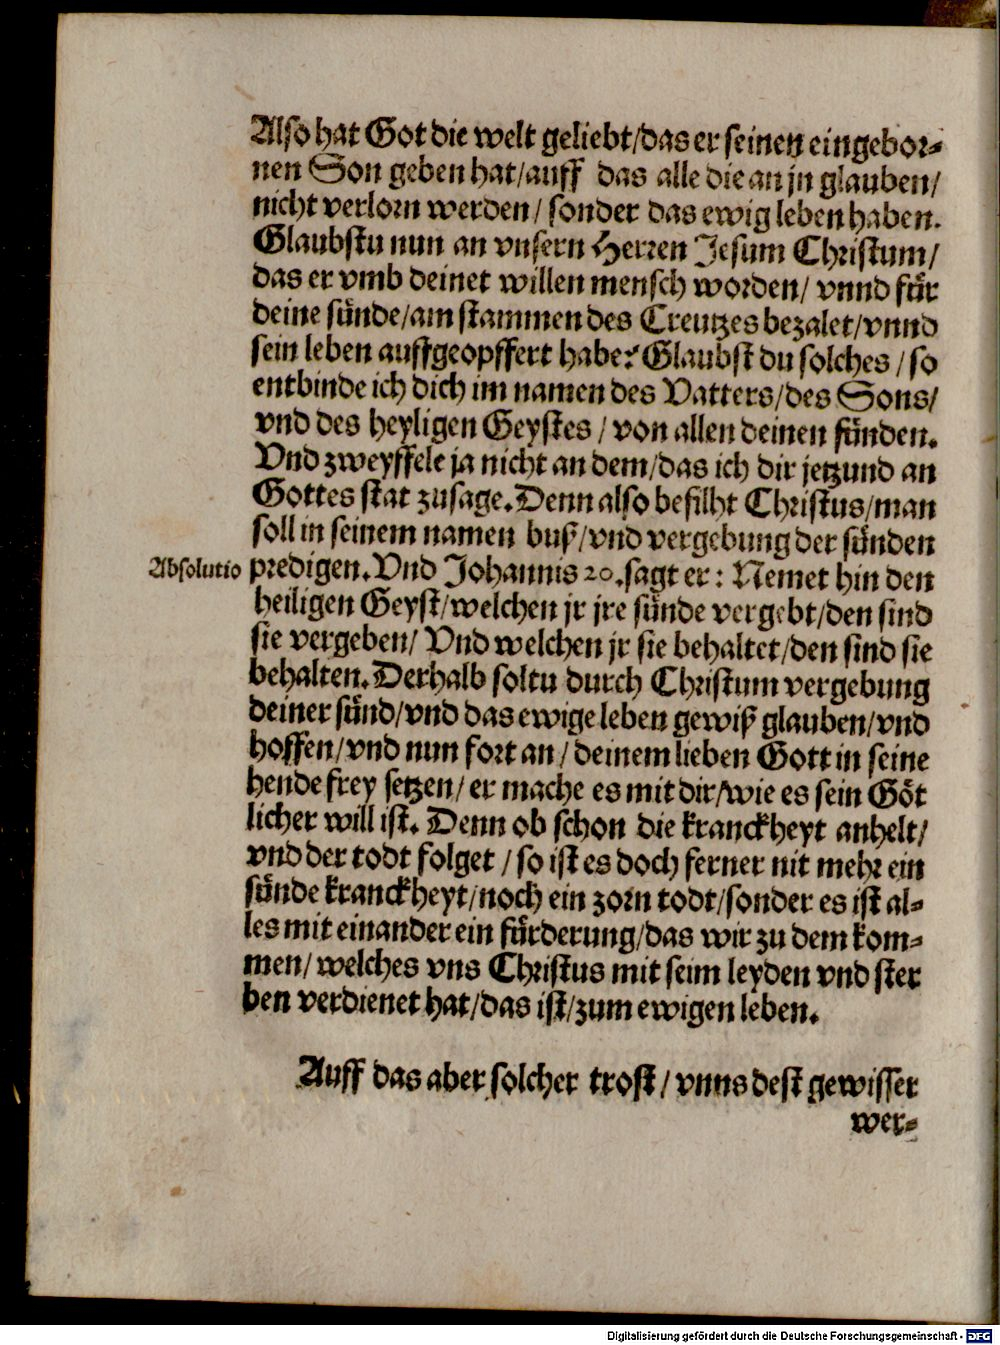 Also hat Got die welt geliebt/das er seinen eingebor⸗
nen Son geben hat/auff das alle die an jn glauben/
nicht verlorn werden/ sonder das ewig leben haben.
Glaubstu nun an vnsern Herren Jesum Christum/
das er vmb deinet willen mensch worden/ vnnd für
deine sünde/am stammen des Creutzes bezalet/vnnd
sein leben auffgeopffert habe? Glaubst du solches / so
entbinde ich dich im namen des Vatters/des Sons/
vnd des heyligen Geystes / von allen deinen sünden.
Vnd zweyffele ja nicht an dem/das ich dir jetzund an
Gottes stat zusage. Denn also befilht Christus/man
soll in seinem namen buß/vnd vergebung der sünden
Absolutio predigen. Vnd Johannis 20. sagt er : Nemet hin den
heiligen Geyst/welchen jr jre sünde vergebt/den sind
sie vergeben/ Vnd welchen jr sie behaltet/den sind sie
behalten. Derhalb soltu durch Christum vergebung
deiner sünd/vnd das ewige leben gewiß glauben/vnd
hoffen/vnd nun fort an / deinem lieben Gott in seine
hende frey setzen/ er mache es mit dir/wie es sein Göt
licher will ist. Denn ob schon die kranckheyt anhelt/
vnd der todt folget / so ist es doch ferner nit mehr ein
sünde kranckheyt/noch ein zorn todt/sonder es ist al⸗
les mit einander ein fürderung/das wir zu dem kom⸗
men/ welches vns Christus mit seim leyden vnd ster
ben verdienet hat/das ist/zum ewigen leben.
Auff das aber solcher trost / vnns dest gewisser
wer⸗
Digitalisierung gefördert durch die Deutsche Forschungsgemeinschaft - DFG